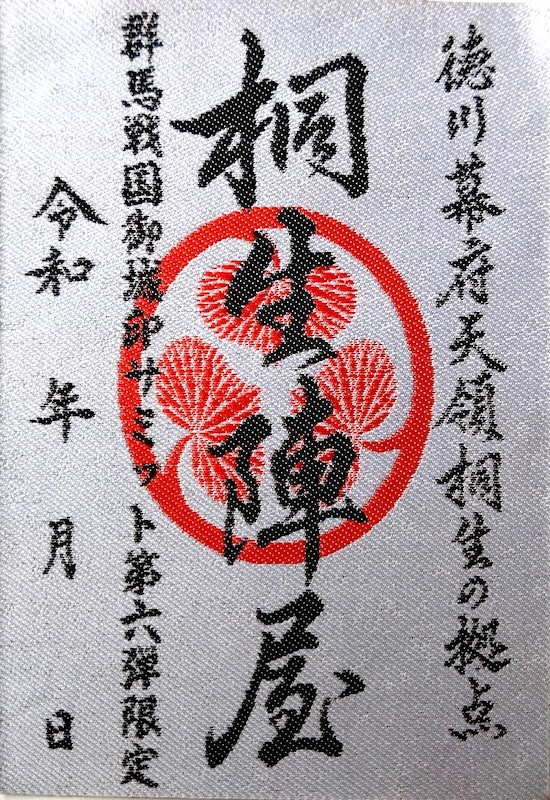 徳川幕府天領桐生の拠点
桐生陣屋
群馬戦国御城印サミット第六弾限定
令和 年 月 日